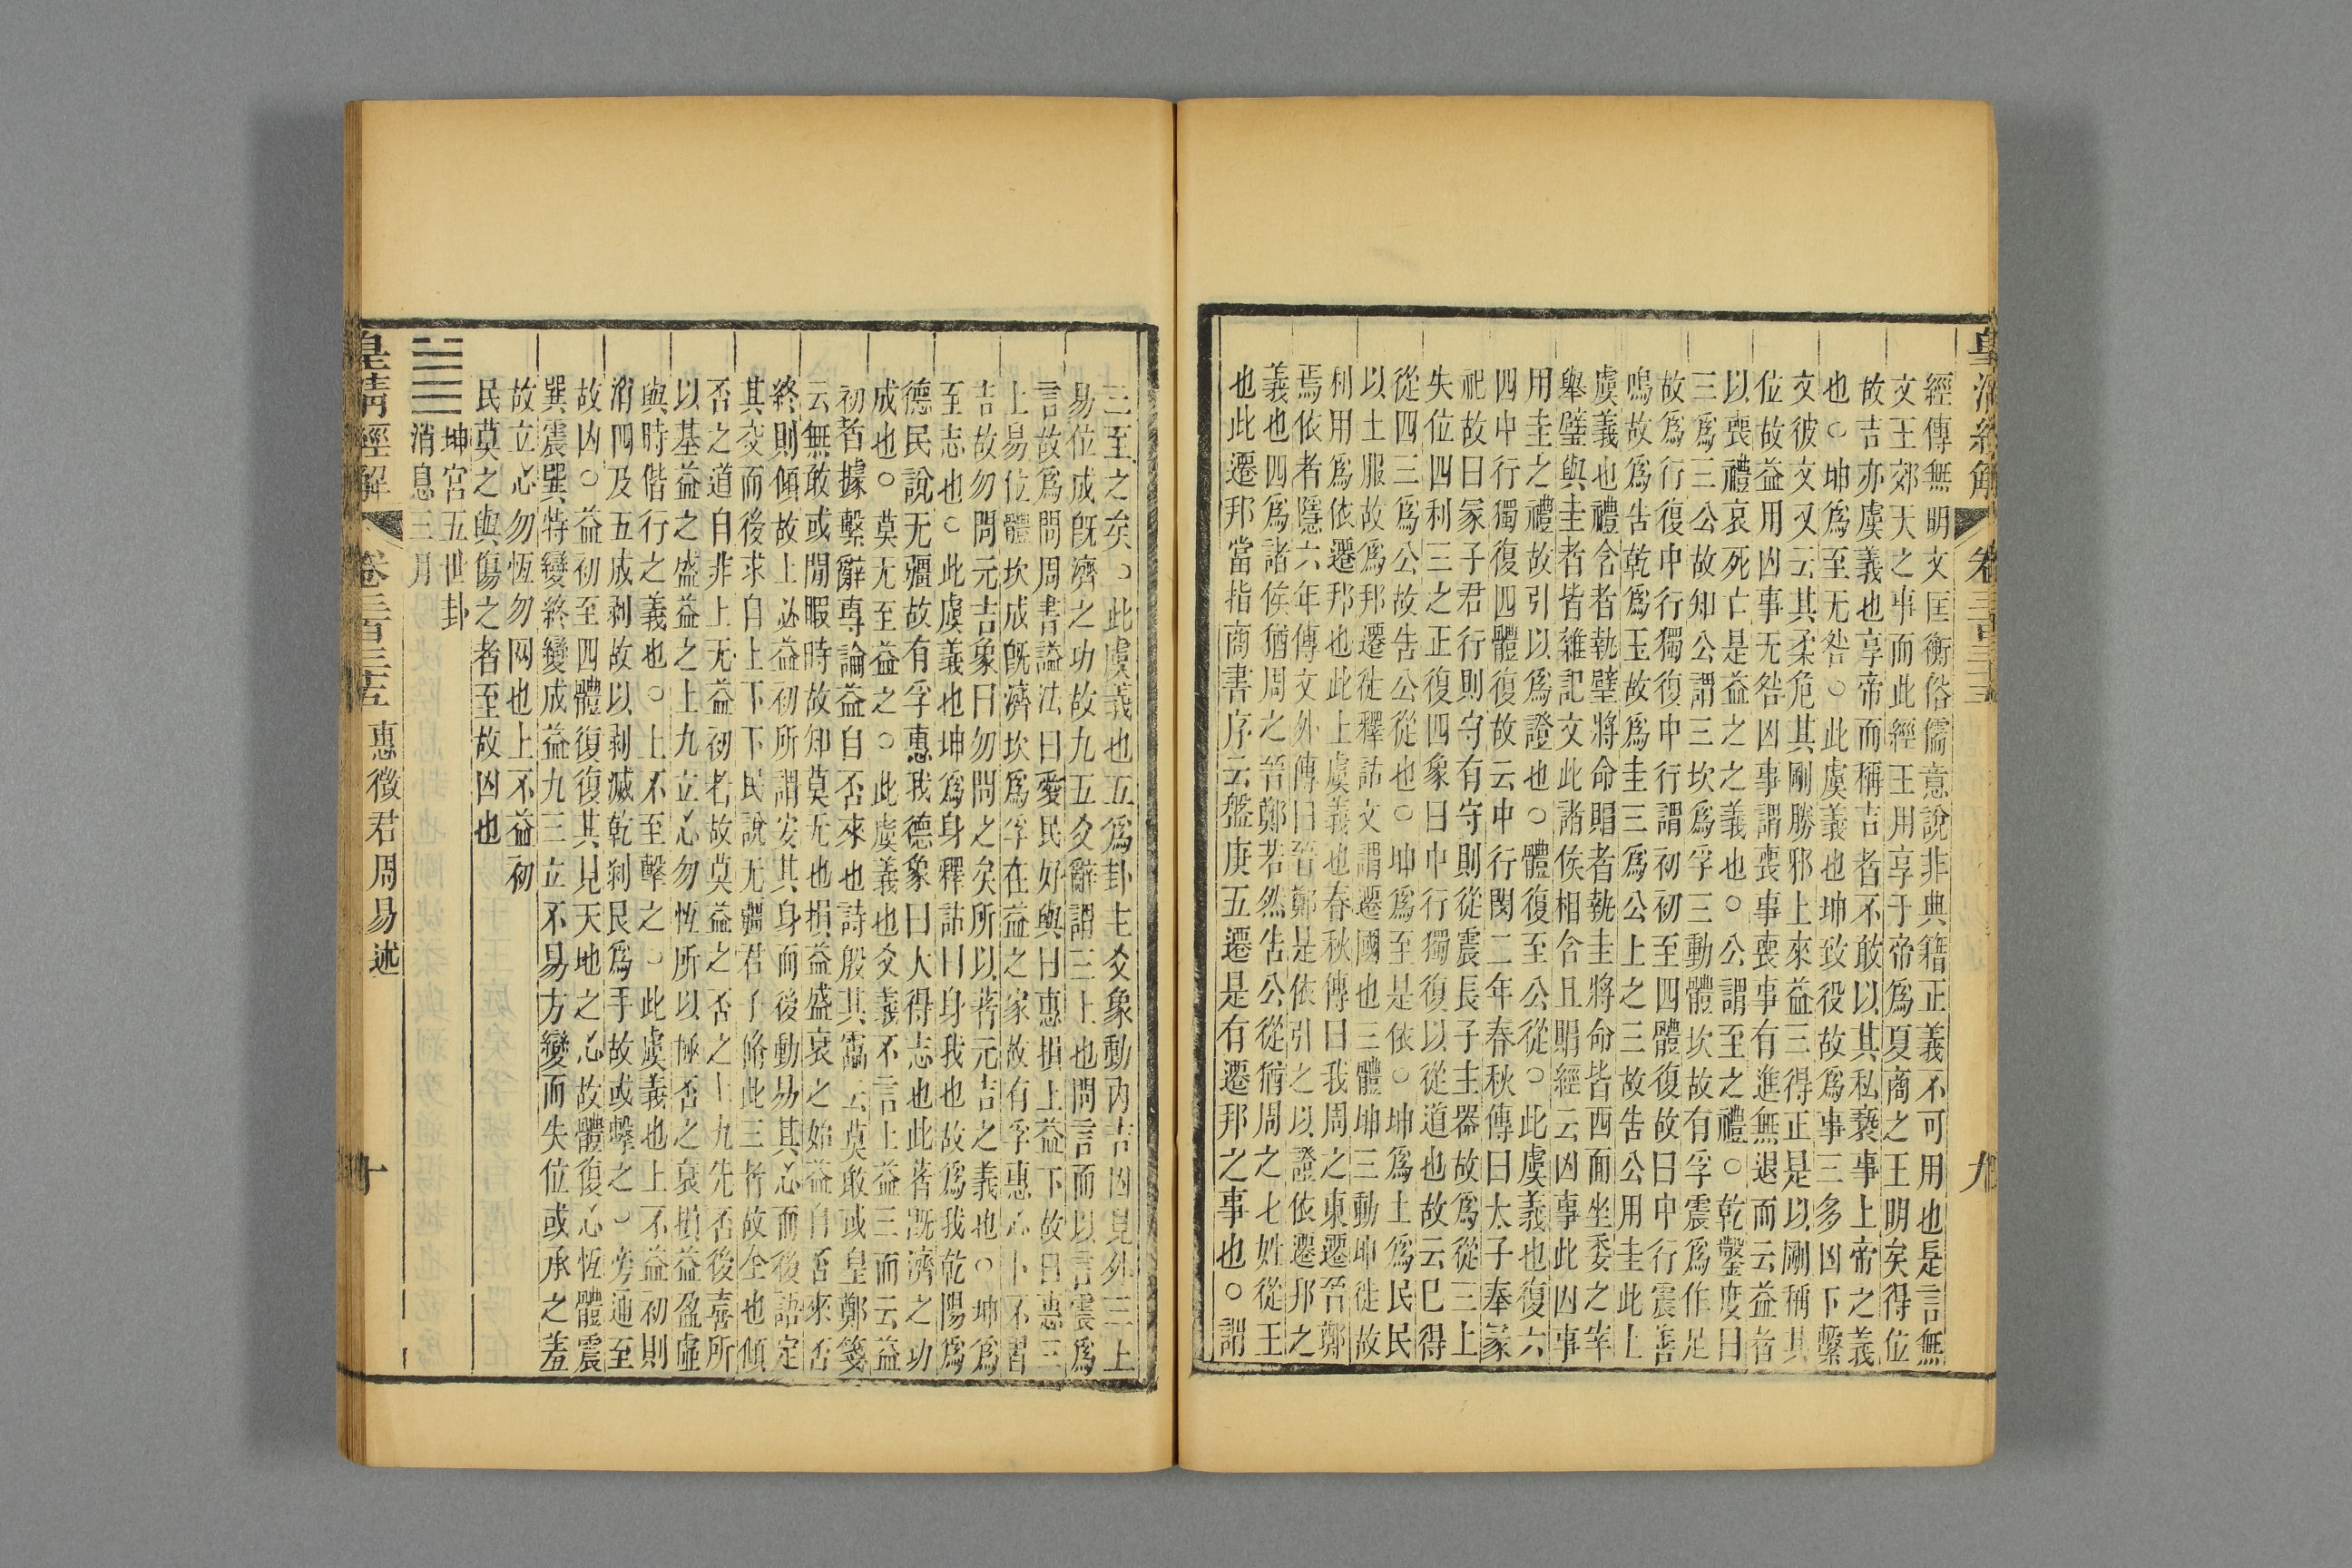 經傳無明文匡衡俗儒意說非典籍正義不可用也是言無
文王郊天之事而此經王用享于帝爲夏商之王明矣得位
故吉亦虞義也享帝而稱吉者不敢以其私褻事上帝之義
也○坤爲至无咎○此虞義也坤致役故爲事三多凶下繫
文彼文又云其柔危其剛勝邪上來益三得正是以剛稱其
位故益用凶事无咎凶事謂喪事喪事有進無退而云益者
以喪禮哀死亡是益之之義也○公謂至之禮○乾鑿度曰
三爲三公故知公謂三坎爲孚三動體坎故有孚震爲作足
故爲行復中行獨復中行謂初初至四體復故曰中行震善
鳴故爲告乾爲玉故爲圭三爲公上之三故告公用圭此上
虞義也禮含者執璧將命賵者執圭將命皆西面坐委之宰
舉璧與圭者皆雜記文此諸侯相含且賵經云凶事此凶事
用圭之禮故引以爲證也○體復至公從○此虞義也復六
四中行獨復四體復故云中行閔二年春秋傳曰太子奉冢
祀故曰冢子君行則守有守則從震長子主器故爲從三上
失位四利三之正復四象曰中行獨復以從道也故云巳得
從四三爲公故告公從也○坤爲至是依○坤爲土爲民民
以土服故爲邦遷徙釋詁文謂遷國也三體坤三動坤徙故
利用爲依遷邦也此上虞義也春秋傳曰我周之東遷晉鄭
焉依者隱六年傳文外傳曰晉鄭是依引之以證依遷邦之
義也四爲諸侯猶周之晉鄭若然告公從猶周之七姓從王
也此遷邦當指商書序云盤庚五遷是有遷邦之事也○謂
皇清經解 卷三百三十三 九
三至之矣○此虞義也五爲卦主爻象動內吉凶見外三上
易位成旣濟之功故九五爻辭謂三上也問言而以言震爲
言故爲問周書謚法曰愛民好與曰惠損上益下故曰惠三
上易位體坎成旣濟坎爲孚在益之家故有孚惠心卜不習
吉故勿問元吉象曰勿問之矣所以著元吉之義也○坤爲
至志也○此虞義也坤爲身釋詁曰身我也故爲我乾陽爲
德民說无疆故有孚惠我德象曰大得志也此著旣濟之功
成也○莫无至益之○此虞義也爻義不言上益三而云益
初者據繫辭專論益自否來也詩殷其靁云莫敢或皇鄭箋
云無敢或閒暇時故知莫无也損益盛衰之始益自否來否
終則傾故上必益初所謂安其身而後動易其心而後語定
其交而後求自上下下民說无疆君子脩此三者故全也傾
否之道自非上无益初者故莫益之否之上九先否後喜所
以基益之盛益之上九立心勿恆所以極否之衰損益盈虛
與時偕行之義也○上不至擊之○此虞義也上不益初則
消四及五成剥故以剥滅乾剥艮爲手故或擊之○旁通至
故凶○益初至四體復復其見天地之心故體復心恆體震
巽震巽特變終變成益九三立不易方變而失位或承之羞
故立心勿恆勿网也上不益初
民莫之與傷之者至故凶也
坤宮五世卦
消息三月
皇淸經解 卷三百三十三 惠徵君周易述 十